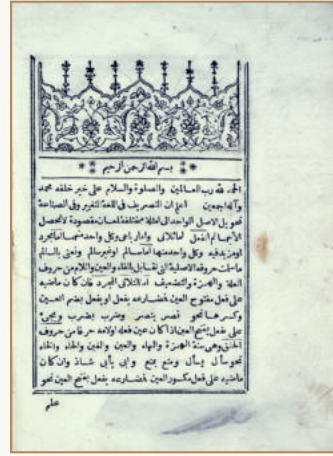 بسم الله الرحمن الرحيم
الحمد لله رب العالمين والصلوة والسلام على خير خلقه محمد
وآله اجمعين اعلم ان التصريف فى اللغة التغيير وفى الصناعة
تحويل الاصل الواحد الى امثلة مختلفة لمعان مقصودة لا تحصل
الا بها ثم الفعل اما ثلاثى واما رباعى وكل واحد منهما اما مجرد
او مزيد فيه وكل واحد منها اما سالم او غير سالم ونعنى بالسالم
ما سلمت حروفه الاصلية التى تقابل بالفاء والعين واللام من حروف
العلة والهمزة والتضعيف اما الثلاثى المجرد فان كان ماضيه
على فعل مفتوح العين فمضارعه يفعل او يفعل بضم العين
وكسرها نحو نصر ينصر وضرب يضرب ويجئ
على يفعل بفتح العين اذا كان عين فعله او لامه حرفا من حروف
الحلق وهى ستة الهمزة والهاء والعين والغين والحاء والخاء
نحو سأل يسأل ومنع يمنع وابى يأبى شاذ وان كان
ماضيه على فعل مكسور العين فمضارعه يفعل بفتح العين نحو
علم